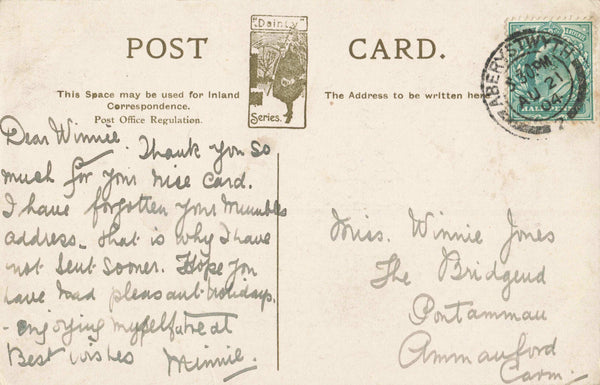 POST CARD.
Dainty
Series.
This Space may be used for Inland
Correspondence.
Post Office Regulation.
The Address to be written here
ABERYSTWYTH
AU 21
04
Dear Winnie. Thank you so
much for your nise card.
I have forgotten your
address. that is why I have
not sent sooner. Hope you
have had pleasant holidays.
- enjoying myself
Best wishes Minnie.
Miss. Winnie Jones
The Bridgend
Pontamman
Ammanford
Carm.